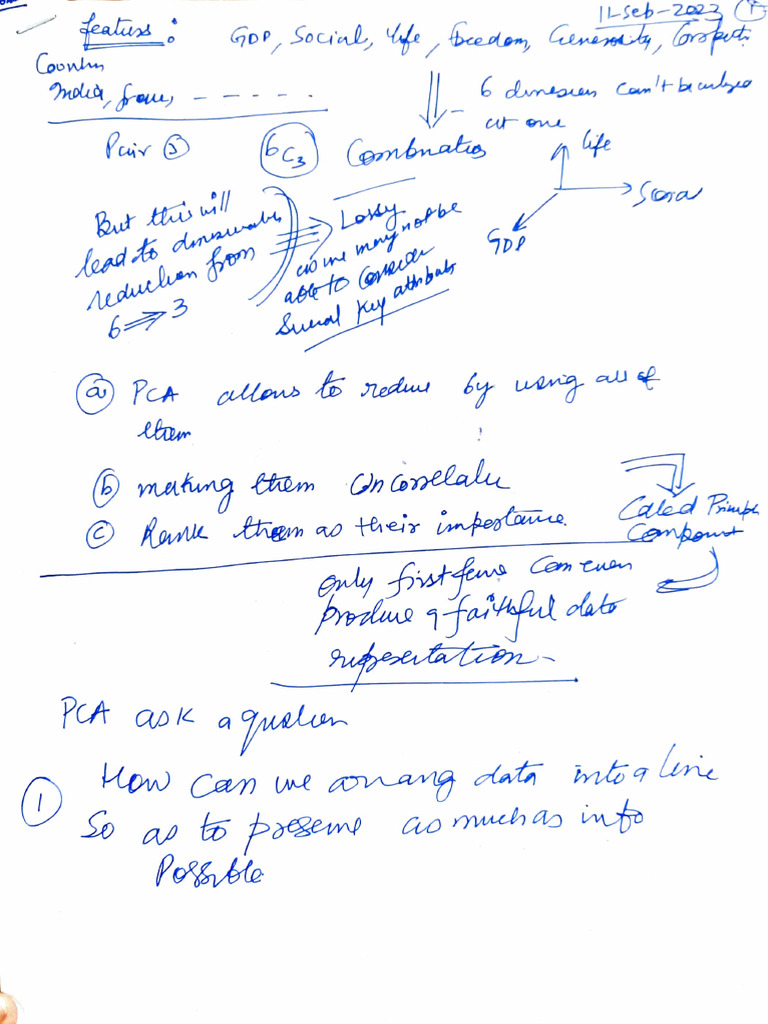 11-Seb-2023 1
features: GDP, Social, Life, freedom, Generosity, Corrpt:
Country
India, france, - - - - -
6 dimesion can't be analyzed
at one
Pair 3 6C3 Combinatios
life
Social
GDP
But this will
lead to
reduction from
6 ⇒ 3
Lossy
as we may not be
able to consider
Several key attributs
a PCA allows to reduce by using all of
them
b making them uncorrelate
c Rank them as their importance.
Called Principle
Component
only first few can even
produce a faithful data
representation -
PCA ask a question
1 How can we arrang data into a line
So as to preserve as much as info
Possible